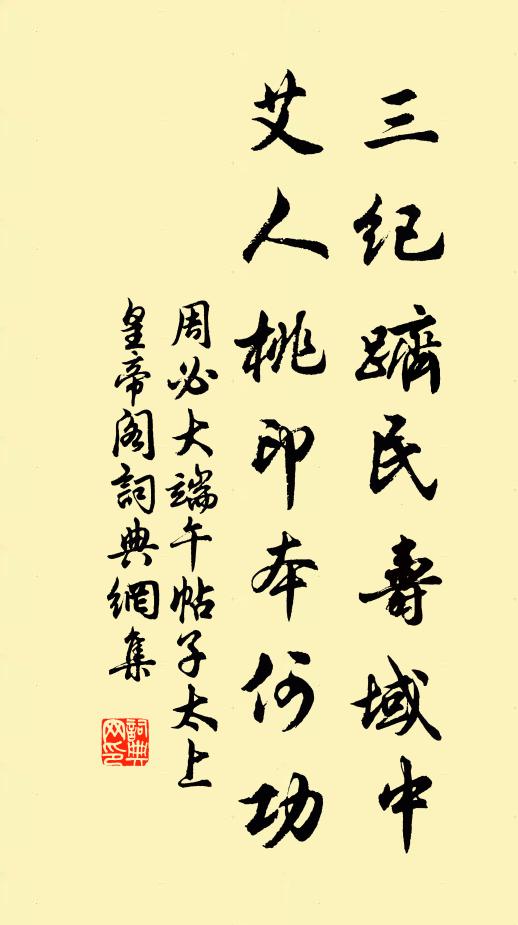 三纪躋民壽域中
艾人桃印本何功
周必大端午帖子太上
皇帝阁詞典網集
詞典網印